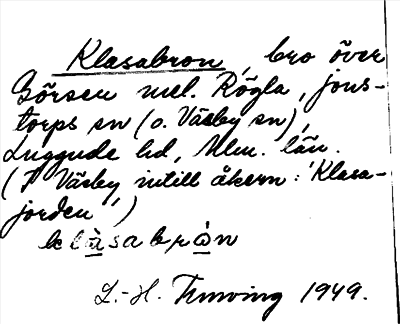 Klasabron, bro över
Görsen mel. Rögla, Jons-
torps sn (o. Väsby sn),
Luggude hd, Mlm. län.
(I Väsby intill åkern: 'Klasa-
jorden')
klàsabrò̀n
L.-H. 1949.